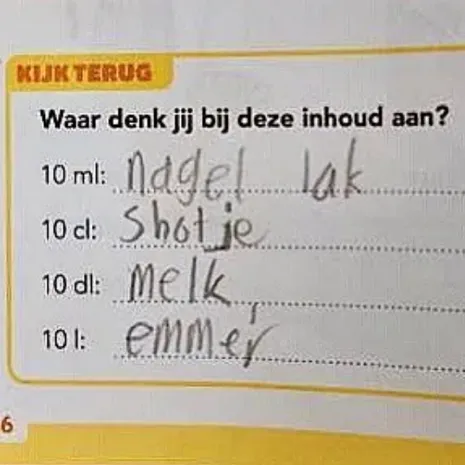 KIJK TERUG
Waar denk jij bij deze inhoud aan?
10 ml: nagel lak
10 cl: shotje
10 dl: melk
10 l: emmer
6